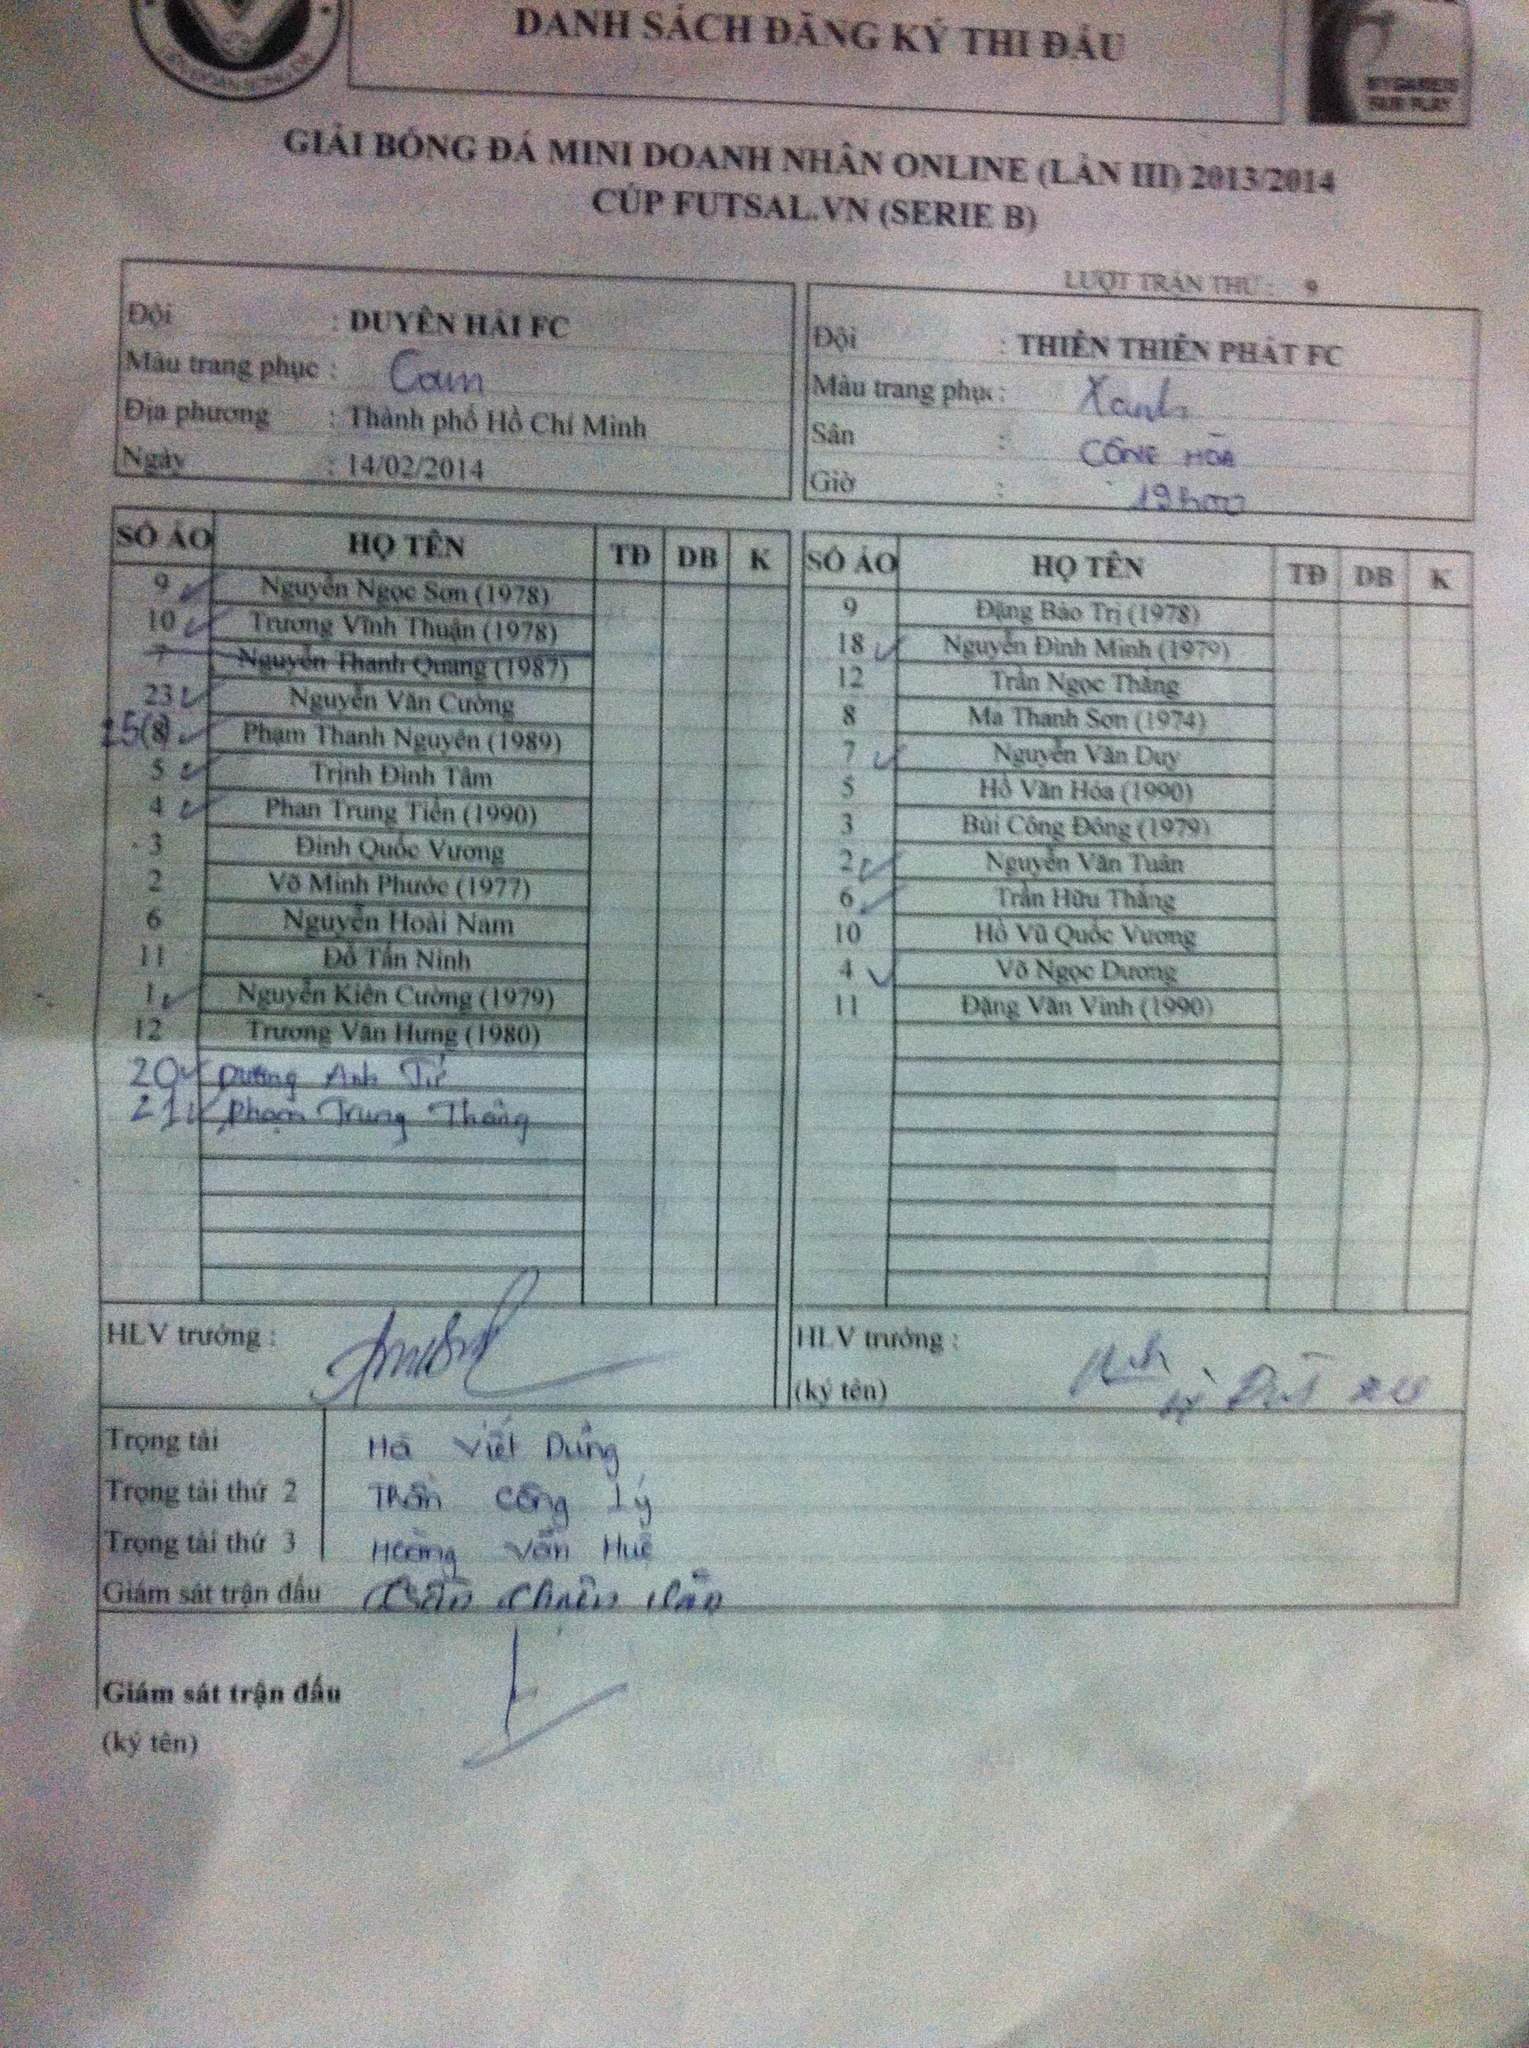 DANH SÁCH ĐĂNG KÝ THI ĐẤU
FAIR PLAY
GIẢI BÓNG ĐÁ MINI DOANH NHÂN ONLINE (LẦN III) 2013/2014
CÚP FUTSAL.VN (SERIE B)
LƯỢT TRẬN THỨ : 9
Đội : DUYÊN HẢI FC
Màu trang phục : Cam
Địa phương : Thành phố Hồ Chí Minh
Ngày : 14/02/2014
Đội : THIÊN THIÊN PHÁT FC
Màu trang phục : Xanh
Sân : CỘNG HÒA
Giờ : 19h00
SỐ ÁO HỌ TÊN TĐ DB K
9 Nguyễn Ngọc Sơn (1978)
10 Trương Vĩnh Thuận (1978)
7 Nguyễn Thanh Quang (1987)
23 Nguyễn Văn Cường
25(8) Phạm Thanh Nguyên (1989)
5 Trịnh Đình Tâm
4 Phan Trung Tiến (1990)
3 Đinh Quốc Vương
2 Võ Minh Phước (1977)
6 Nguyễn Hoài Nam
11 Đỗ Tấn Ninh
1 Nguyễn Kiên Cường (1979)
12 Trương Văn Hưng (1980)
20 Dương Anh Tú
21 Phạm Trung Thắng
SỐ ÁO HỌ TÊN TĐ DB K
9 Đặng Bảo Trị (1978)
18 Nguyễn Đình Minh (1979)
12 Trần Ngọc Thắng
8 Ma Thanh Sơn (1974)
7 Nguyễn Văn Duy
5 Hồ Văn Hóa (1990)
3 Bùi Công Đông (1979)
2 Nguyễn Văn Tuân
6 Trần Hữu Thắng
10 Hồ Vũ Quốc Vương
4 Võ Ngọc Dương
11 Đặng Văn Vinh (1990)
HLV trưởng :
HLV trưởng :
(ký tên)
Trọng tài Hà Viết Dũng
Trọng tài thứ 2 Trần Công Lý
Trọng tài thứ 3 Hoàng Văn Huề
Giám sát trận đấu
Giám sát trận đấu
(ký tên)